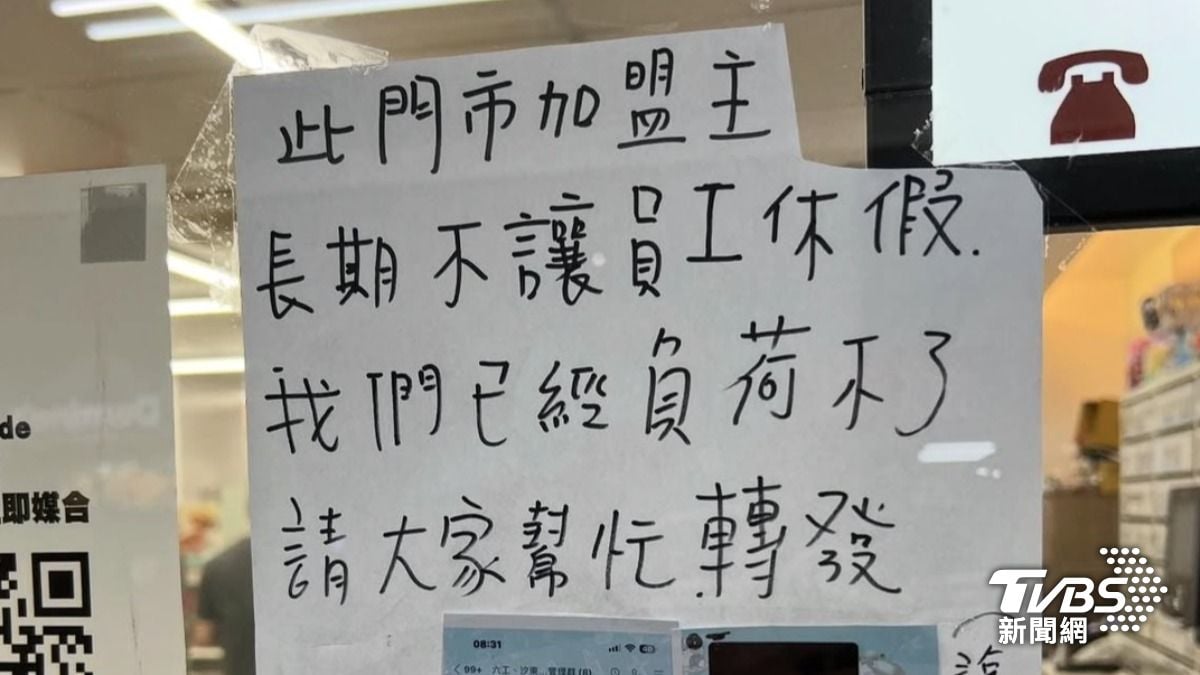 此門市加盟主
長期不讓員工休假.
我們已經負荷不了
請大家幫忙轉發
de
即媒合
08:31
99+
TVBS
新聞網